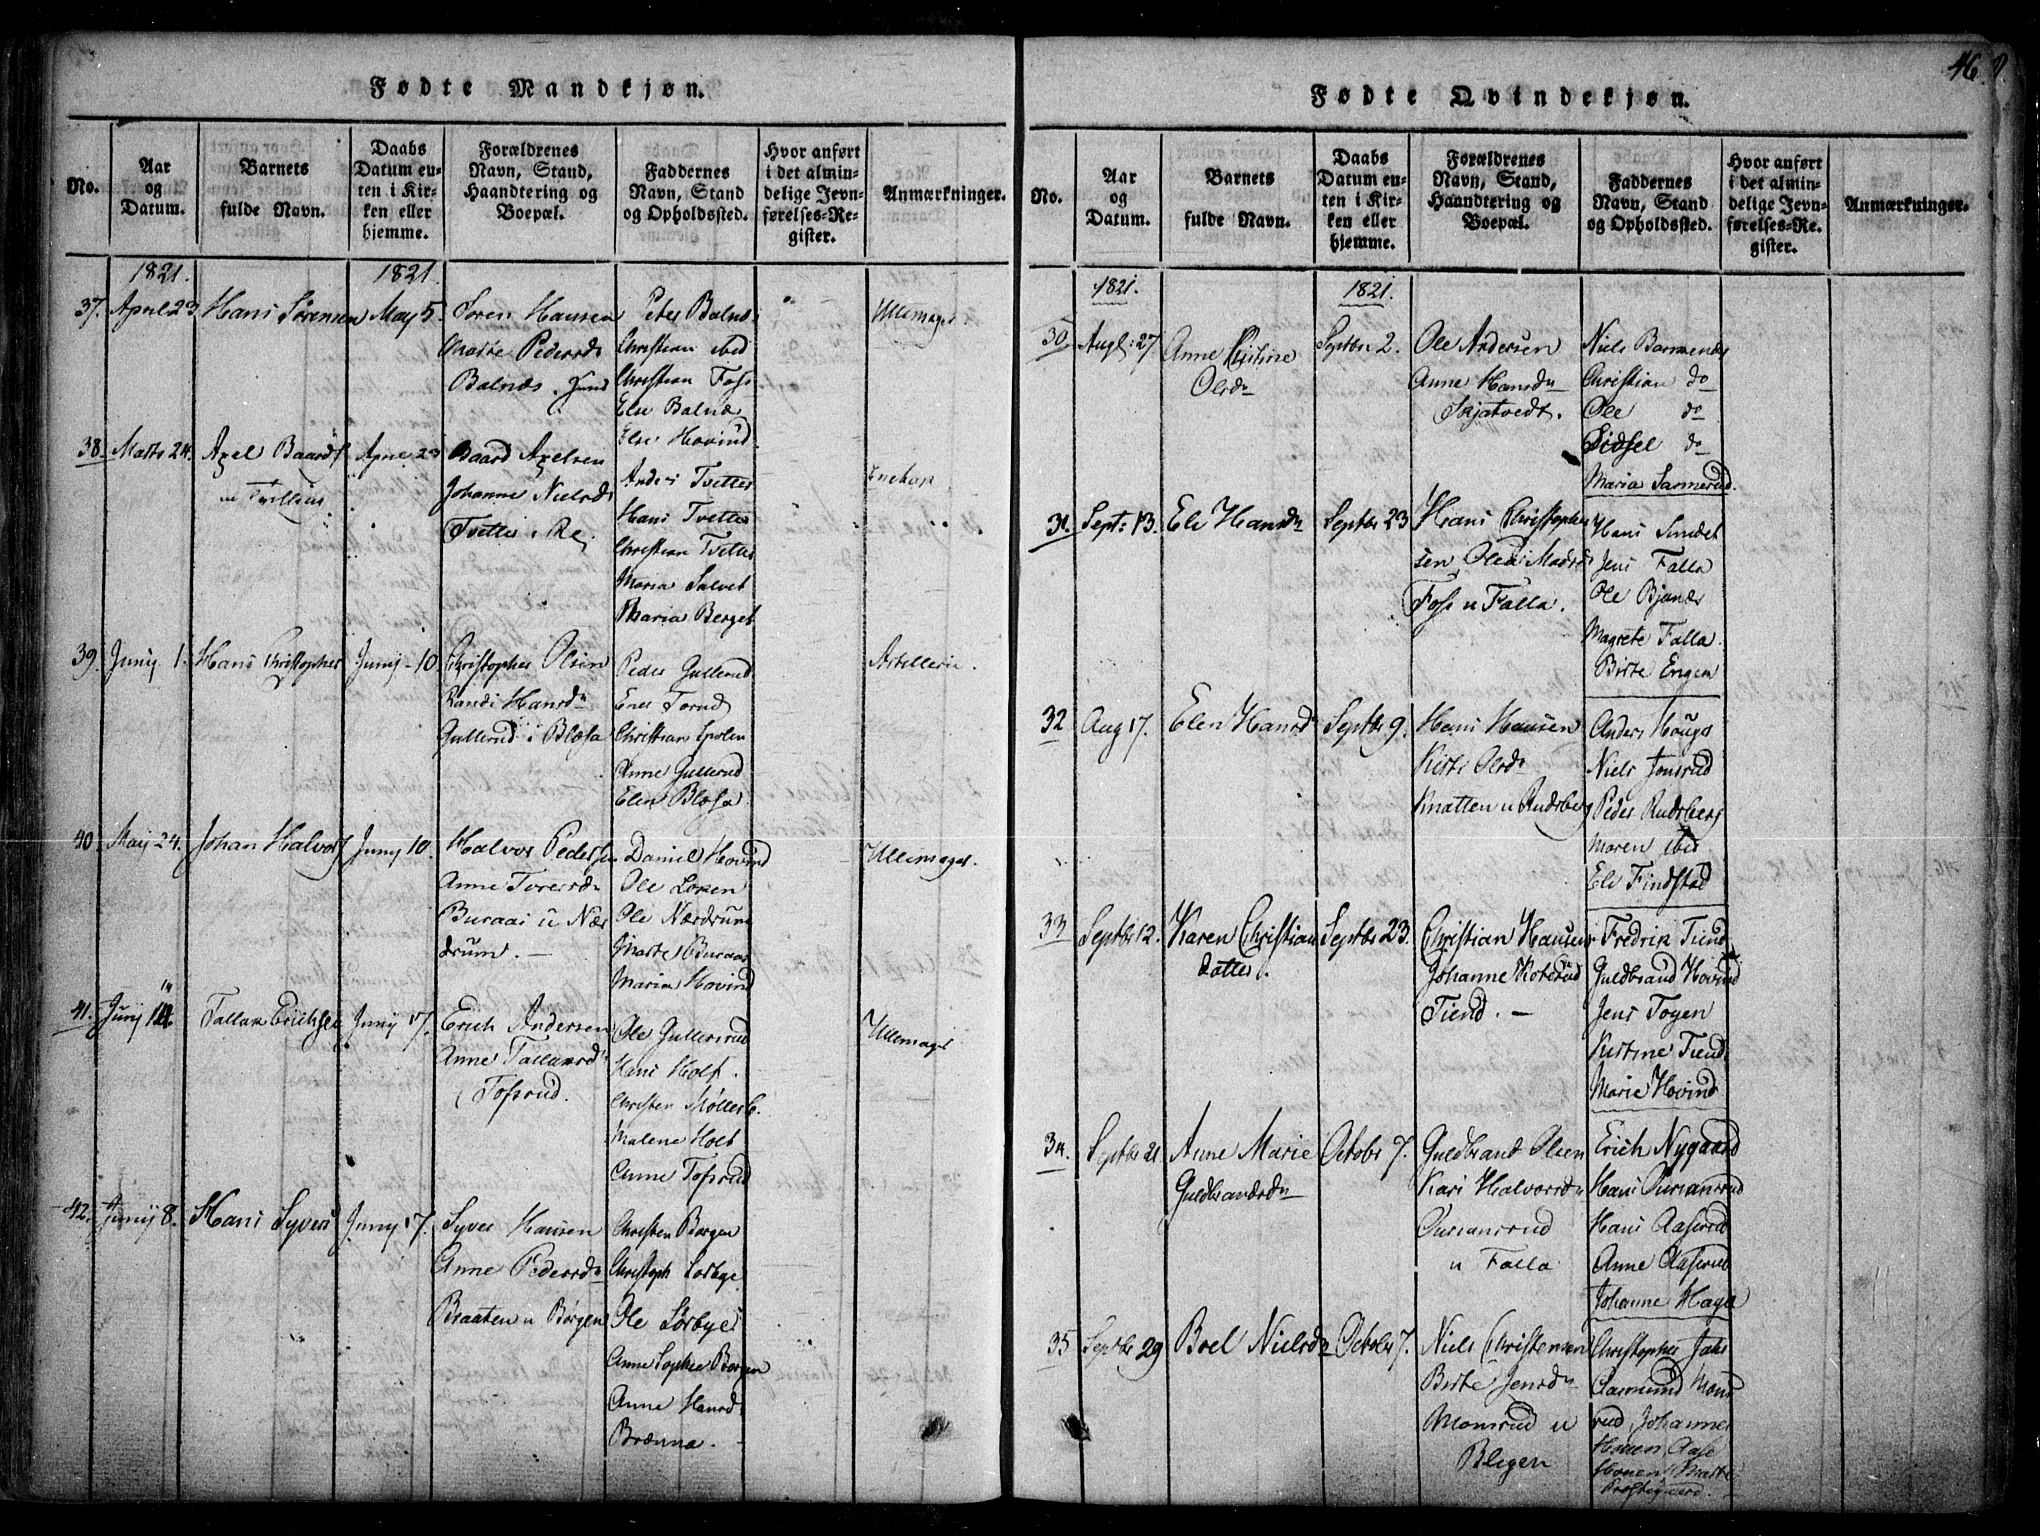 46.
Fødte Mandkjøn.
No.
Aar og Datum.
Barnets fulde Navn.
Daabs Datum enten i Kirken eller hjemme.
Forældrenes Navn, Stand, Haandtering og Boepæl.
Faddernes Navn, Stand og Opholdssted.
Hvor anført i det almindelige Jevnførelses-Register.
Anmærkninger.
1821.
1821.
37. April 23 Hans Sørensen May 5.
Søren Hansen
Marte Pedersd
Balnæs
Peter Balnæs
Christian ibid
Christian Foss
Else Balnæs
Else Hovind
Ullemager
38. Marts 24. Axel Baards
Baard Axelsen
Johanne Nielsd
Tvetter
Anders Tvetter
Hans Tvetter
Christian Tvetter
Maria Salvet
Maria Berget
39. Junij 1. Hans Christophers Junij 10
Christopher Olsen
Randi Hansdn
Gullerud i Blæsa
Peder Gullerud
Christian
Anne Gullerud
Elen Blæsa
Artillerie.
40 Maij 24. Johan Halvors Junij 10.
Halvor Pedersen
Anne
Buraas u Nær
drum. —
Daniel Hovind
Ole Løken
Ole Nærdrum
Marte Buraas
Maria Hovind
Ullemager
41. Junij 14 Tallak Erichsen Junij 17.
Erich Andersen
Anne Tallaksdn
Tosrud.
Ole Gullersrud
Hans Holt.
Christen Møllerb.
Malene Holt
Anne Tosrud
Ullemager
42. Junij 8. Hans Syvers Junij 17.
Syver Hansen
Anne Pedersdn
Braaten u Børgen
Christen Børgen
Christoph Sørbye
Ole Sørbye
Anne Sophie Børgen
Anne Hansd.
Brænna. -
Fødte Qvindekjøn.
No.
Aar og Datum.
Barnets fulde Navn.
Daabs Datum enten i Kirken eller hjemme.
Forældrenes Navn, Stand, Haandtering og Boepæl.
Faddernes Navn, Stand og Opholdssted.
Hvor anført i det almindelige Jevnførelses-Register.
Anmærkninger.
1821.
1821.
30. Augs: 27 Anne Kirstine Septbr 2.
Olsdn
Ole Andersen
Anne Hansdn
Skjatvedt.
Niels
Christian do
Ole do
Sidsel do
Maria Sannerud.
31. Sept: 13. Eli Hansdn Septbr 23
Hans Christopher
sen, Olea Madsd
Foss u Falla.
Hans
Jens Falla
Ole Bjanes
Magrete Falla.
Birte Engen
32 Aug 17. Elen Hansd Septbr 9.
Hans Hansen
Kirsti Olsdn
Knatten u Rudsberg
Anders Haugs
Niels Jonsrud
Peder Rudsberg
Maren ibid
Eli Findstad
33 Septbr 12. Karen Christian Septbr 23.
datter.
Christian Hansen
Johanne
Tiend. —
Fredrik Tiend
Guldbrand Hovind
Jens Toyen
Kirstine Tiend
Marie Hovind
34. Septbr 21 Anne Marie Octobr 7.
Guldbrandsdn
Guldbrand Olsen
Kari Halvorsdn
Ouriansrud
u Falla
Erich Nygaard
Hans Ouriansrud
Hans Aaserud
Anne Aaserud
Johanne Haga
35 Septbr 29 Boel Nielsdn Octobr 7.
Niels Christensen
Birte Jensdn
Monsrud u
Bligen
Christopher
Aasmund Mons
rud Johannes
Houen Aase
Houen Marte